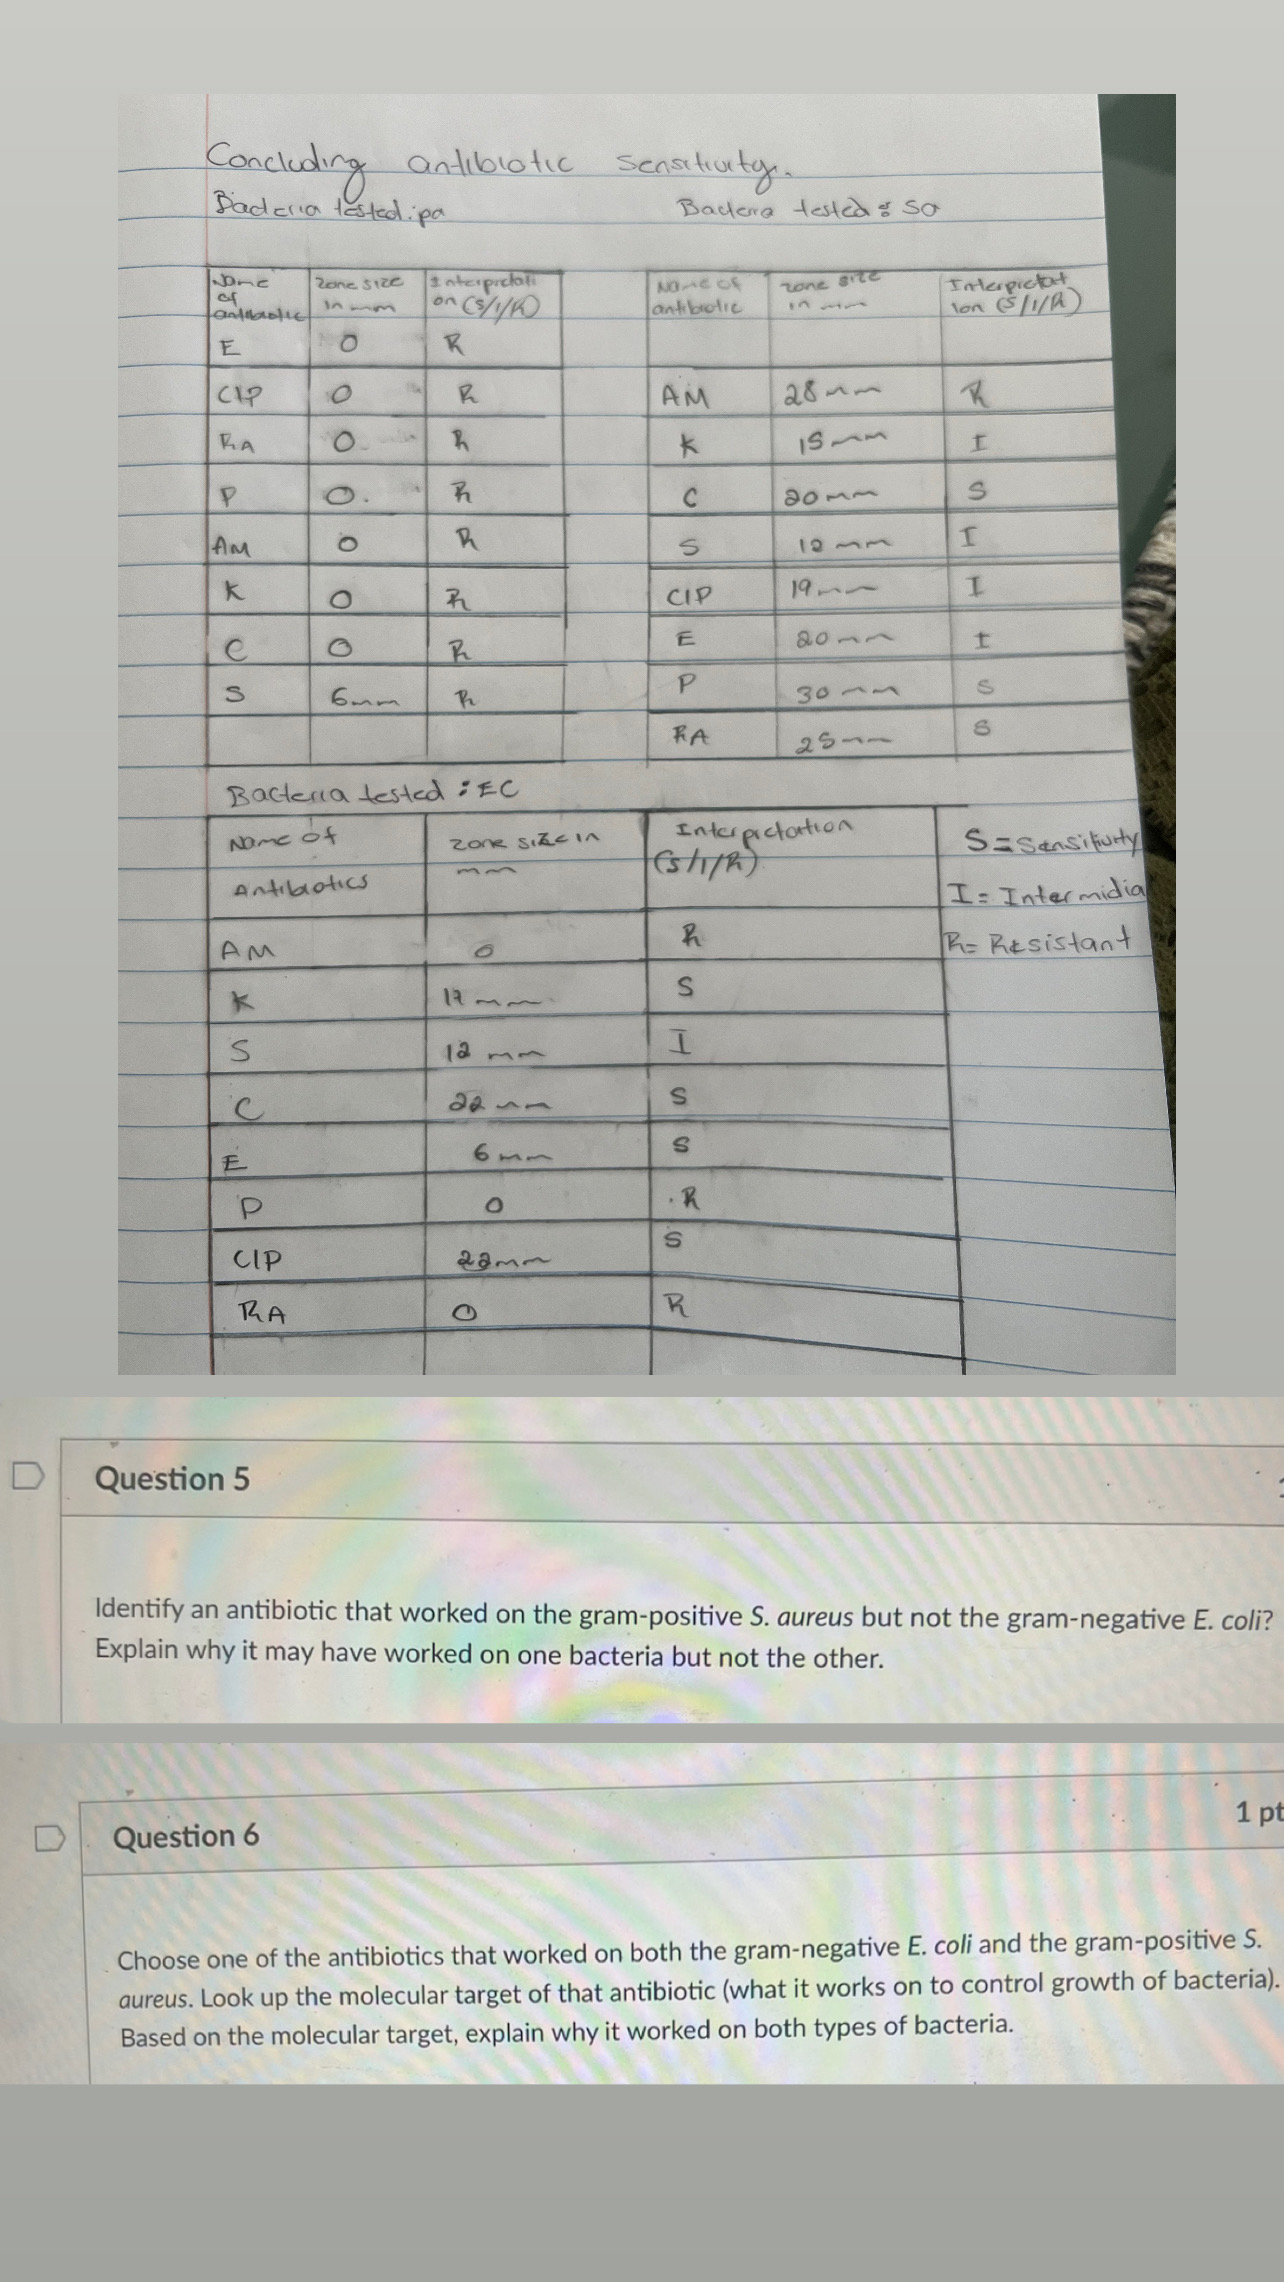 Concluding antibiotic sensitivity.
Bacteria tested: pa
Bacteria tested: SA
Name of antibiotic | zone size in mm | Interpretation (S/I/R)
E | 0 | R
CIP | 0 | R
RA | 0 | R
P | 0. | R
AM | 0 | R
K | 0 | R
C | 0 | R
S | 6mm | R
Name of antibiotic | zone size in mm | Interpretation (S/I/R)
AM | 28mm | R
K | 15mm | I
C | 20mm | S
S | 12mm | I
CIP | 19mm | I
E | 20mm | I
P | 30mm | S
RA | 25mm | S
Bacteria tested: EC
Name of Antibiotics | zone size in mm | Interpretation (S/I/R)
AM | 0 | R
K | 17 mm | S
S | 12 mm | I
C | 22 mm | S
E | 6mm | S
P | 0 | R
CIP | 22mm | S
RA | 0 | R
S = Sensitivity
I = Intermidia
R = Resistant
Question 5
Identify an antibiotic that worked on the gram-positive S. aureus but not the gram-negative E. coli?
Explain why it may have worked on one bacteria but not the other.
1 pt
Question 6
Choose one of the antibiotics that worked on both the gram-negative E. coli and the gram-positive S.
aureus. Look up the molecular target of that antibiotic (what it works on to control growth of bacteria).
Based on the molecular target, explain why it worked on both types of bacteria.